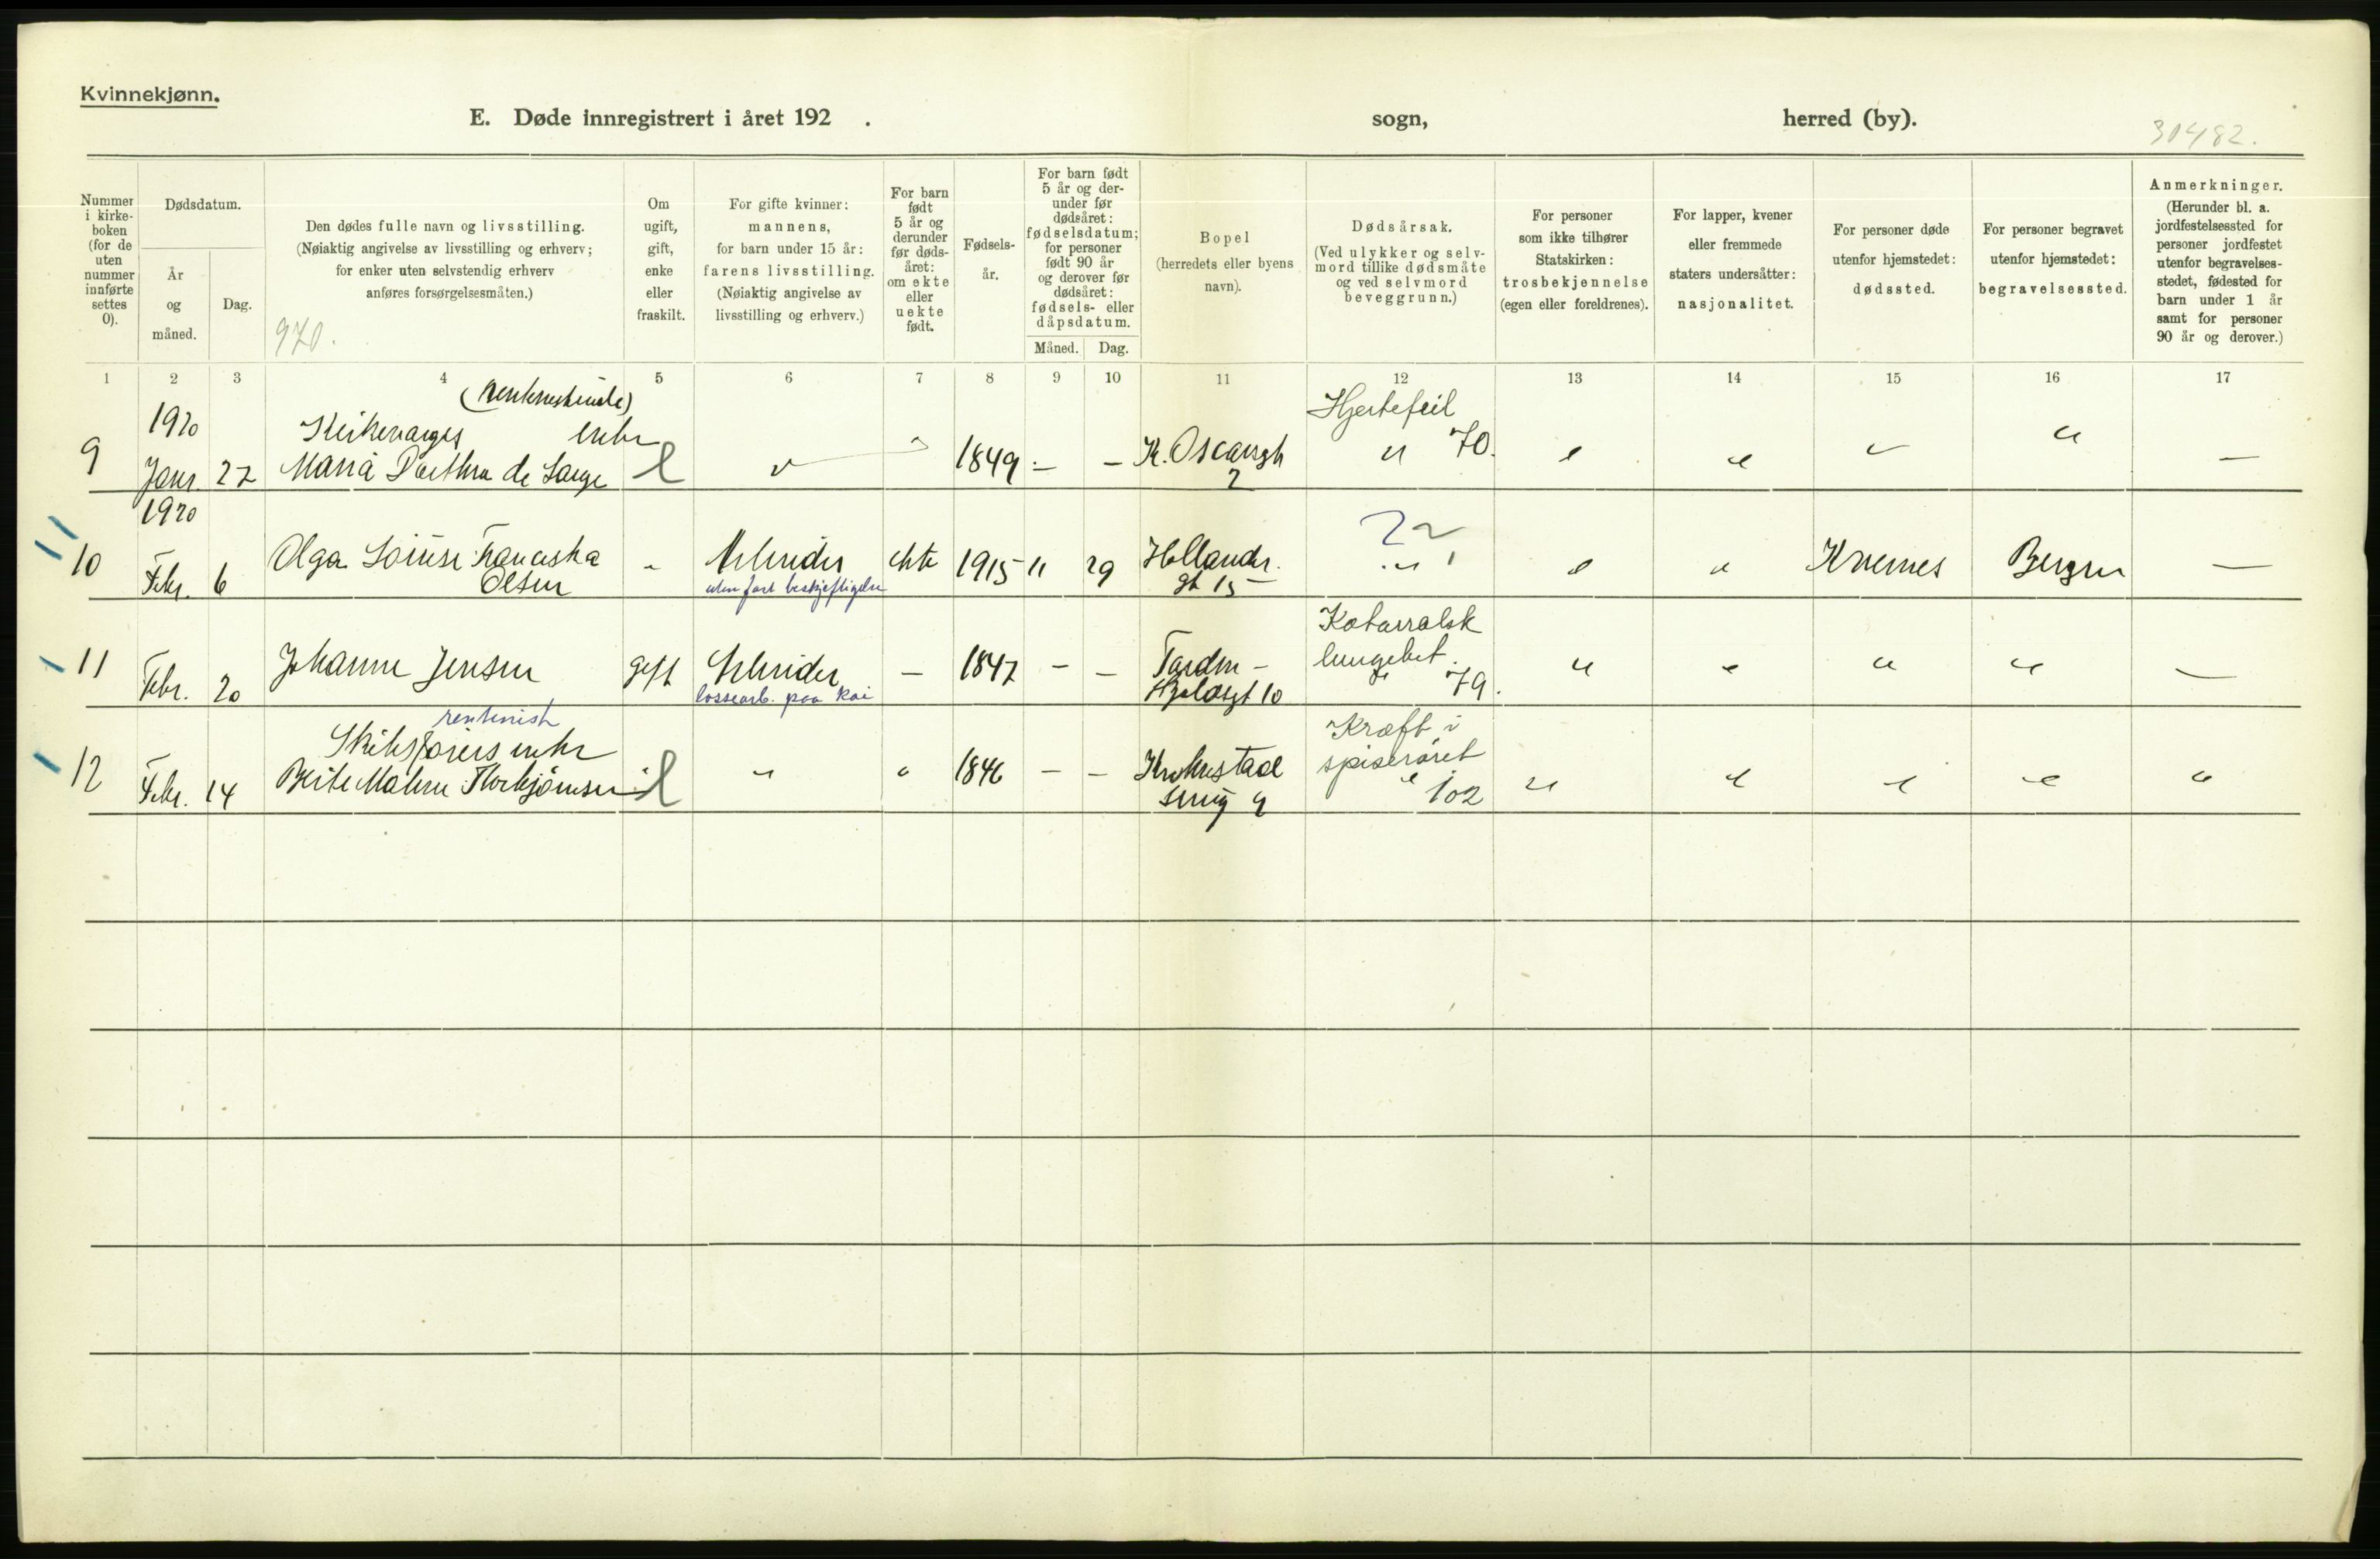 Kvinnekjønn.
E. Døde innregistrert i året 192 . sogn, herred (by).
30482.
Nummer i kirkeboken (for de uten nummer innførte settes 0).
Dødsdatum.
År og måned.
Dag.
Den dødes fulle navn og livsstilling.
(Nøiaktig angivelse av livsstilling og erhverv;
for enker uten selvstendig erhverv
anføres forsørgelsesmåten.)
970.
Om ugift, gift, enke eller fraskilt.
For gifte kvinner:
mannens,
for barn under 15 år:
farens livsstilling.
(Nøiaktig angivelse av
livsstilling og erhverv.)
For barn født 5 år og derunder før dødsåret: om ekte eller uekte født.
Fødselsår.
For barn født 5 år og derunder før dødsåret: fødselsdatum; for personer født 90 år og derover før dødsåret: fødsels- eller dåpsdatum.
Måned. Dag.
Bopel
(herredets eller byens
navn).
Dødsårsak.
(Ved ulykker og selvmord tillike dødsmåte og ved selvmord beveggrunn.)
For personer
som ikke tilhører
Statskirken:
trosbekjennelse
(egen eller foreldrenes).
For lapper, kvener
eller fremmede
staters undersåtter:
nasjonalitet.
For personer døde
utenfor hjemstedet:
dødssted.
For personer begravet
utenfor hjemstedet:
begravelsessted.
Anmerkninger.
(Herunder bl. a.
jordfestelsessted for
personer jordfestet
utenfor begravelsesstedet, fødested for
barn under 1 år
samt for personer
90 år og derover.)
1 2 3 4 5 6 7 8 9 10 11 12 13 14 15 16 17
9
1920
Janr. 27
Kirkevarges enke
Maria Dorthea de Lange
e
1849
— —
K. Oscarsgt
2
Hjertefeil
" 70.
" " " " —
10
1920
Febr. 6
Olga Louise
Olsen
"
Arbeider
uten fast beskjeftigelse
ekte 1915 11 29
Hollender.
gt 15
" "
Bergen —
11
Febr. 20
Johanne Jensen
gift
Arbeider
lossearb. paa kai
— 1847 — —
Katarralsk
lungebet.
" 79.
" " " " —
12
Febr. 14
rentenist
Skibsførers enke
Thorbjørnsen
e
" " 1846 — —
Krohnstad
smug 9
Kræft i
spiserøret
" 102
" " " " "